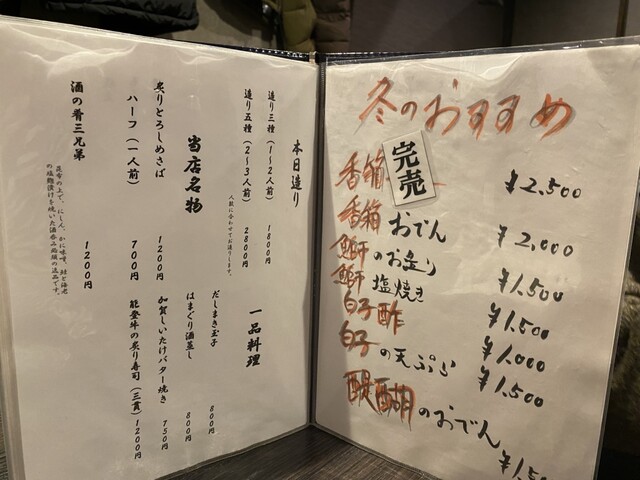 本日造り
造り三種（1～2人前） 1800円
造り五種（2～3人前） 2800円
人数に合わせてお造りします。
当店名物
炙りとろしめさば 1200円
ハーフ（一人前） 700円
酒の肴三兄弟 1200円
一品料理
だしまき玉子 800円
はまぐり酒蒸し 800円
加賀しいたけバター焼き 750円
能登牛の炙り寿司（三貫） 1200円
冬のおすすめ
香箱 ¥2,500
完売
香箱おでん ¥2,000
のお造り ¥1,500
塩焼き ¥1,500
白子酢 ¥1,000
白子の天ぷら ¥1,500
醍醐のおでん